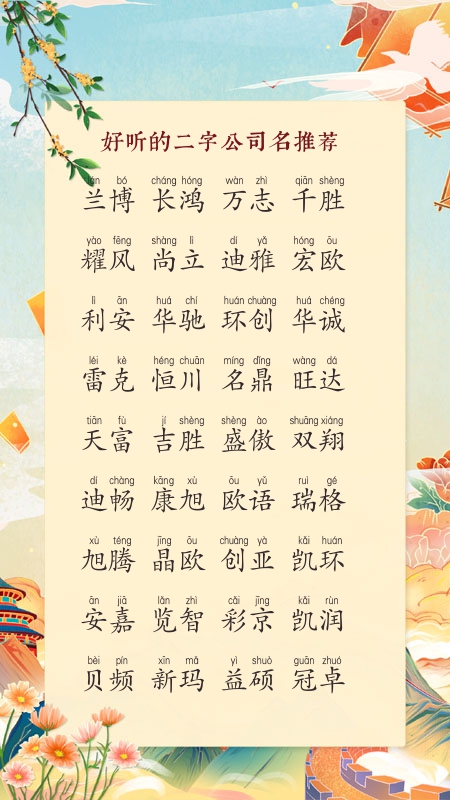 好听的二字公司名推荐
lán bó cháng hóng wàn zhì qiān shèng
兰博 长鸿 万志 千胜
yào fēng shàng lì dí yǎ hóng ōu
耀风 尚立 迪雅 宏欧
lì ān huá chí huán chuàng huá chéng
利安 华驰 环创 华诚
léi kè héng chuān míng dǐng wàng dá
雷克 恒川 名鼎 旺达
tiān fù jí shèng shèng ào shuāng xiáng
天富 吉胜 盛傲 双翔
dí chàng kāng xù ōu yǔ ruì gé
迪畅 康旭 欧语 瑞格
xù téng jīng ōu chuàng yà kǎi huán
旭腾 晶欧 创亚 凯环
ān jiā lǎn zhì cǎi jīng kǎi rùn
安嘉 览智 彩京 凯润
bèi pín xīn mǎ yì shuò guān zhuó
贝频 新玛 益硕 冠卓